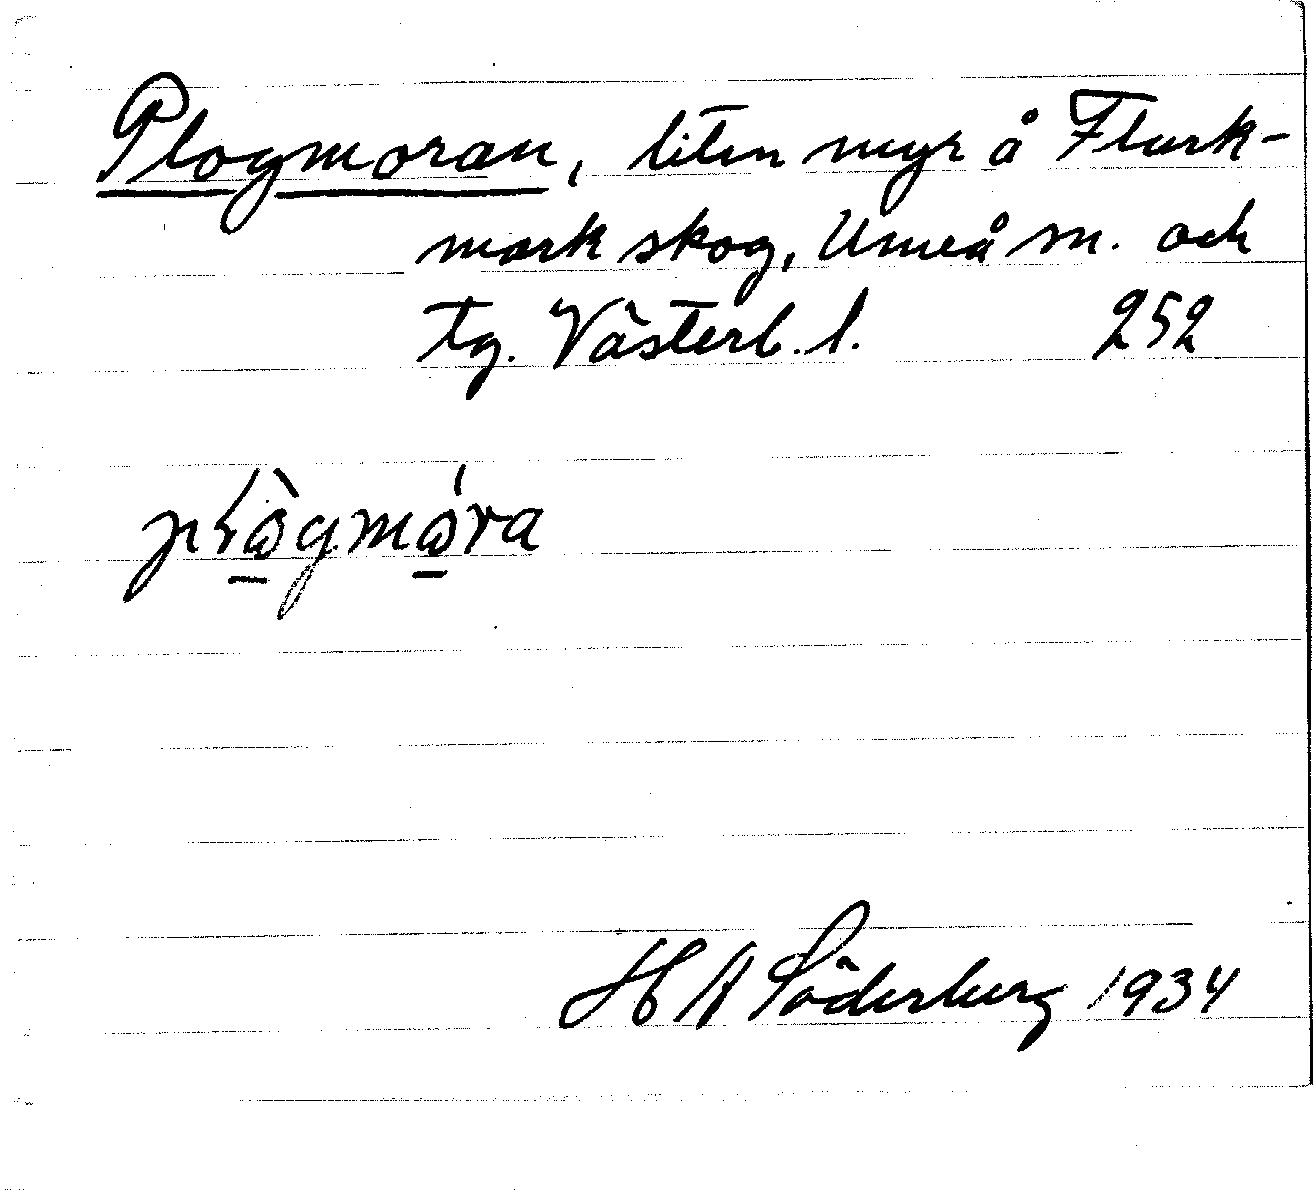 Plogmoran, liten myr å Flark-
mark skog, Umeå sn. och
tg. Västerb. l. 252
H A Söderberg 1934